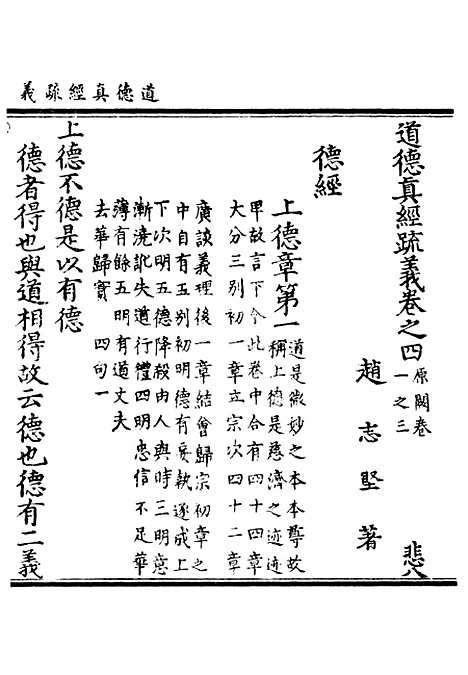 道德真經疏義
道德真經疏義卷之四 原闕卷一之三 悲八
趙志堅著
德經
上德章第一
道是微妙之本本尊故
稱上德是慈濟之迹迹
卑故言下今此卷中合有四十四章
大分三別初一章立宗次四十二章
廣談義理後一章結會歸宗初章之
中自有五別初明德有妄執遂成上
下次明五德降殺由人與時三明意
漸澆訛失道行禮四明忠信不足華
薄有餘五明有道丈夫
去華歸實 四句一
上德不德是以有德
德者得也與道相得故云德也德有二義